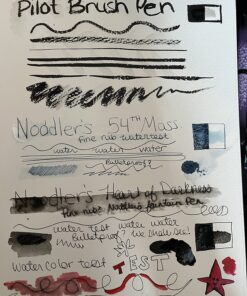 Pilot Brush Pen
Noodler's 54TH Mass
fine nib water test
water water water
Bulletproof?
Noodler's Heart of Darkness
fine nib Noodler's fountain pen
water test water water
Bulletproof? We shall see!
water color test TEST